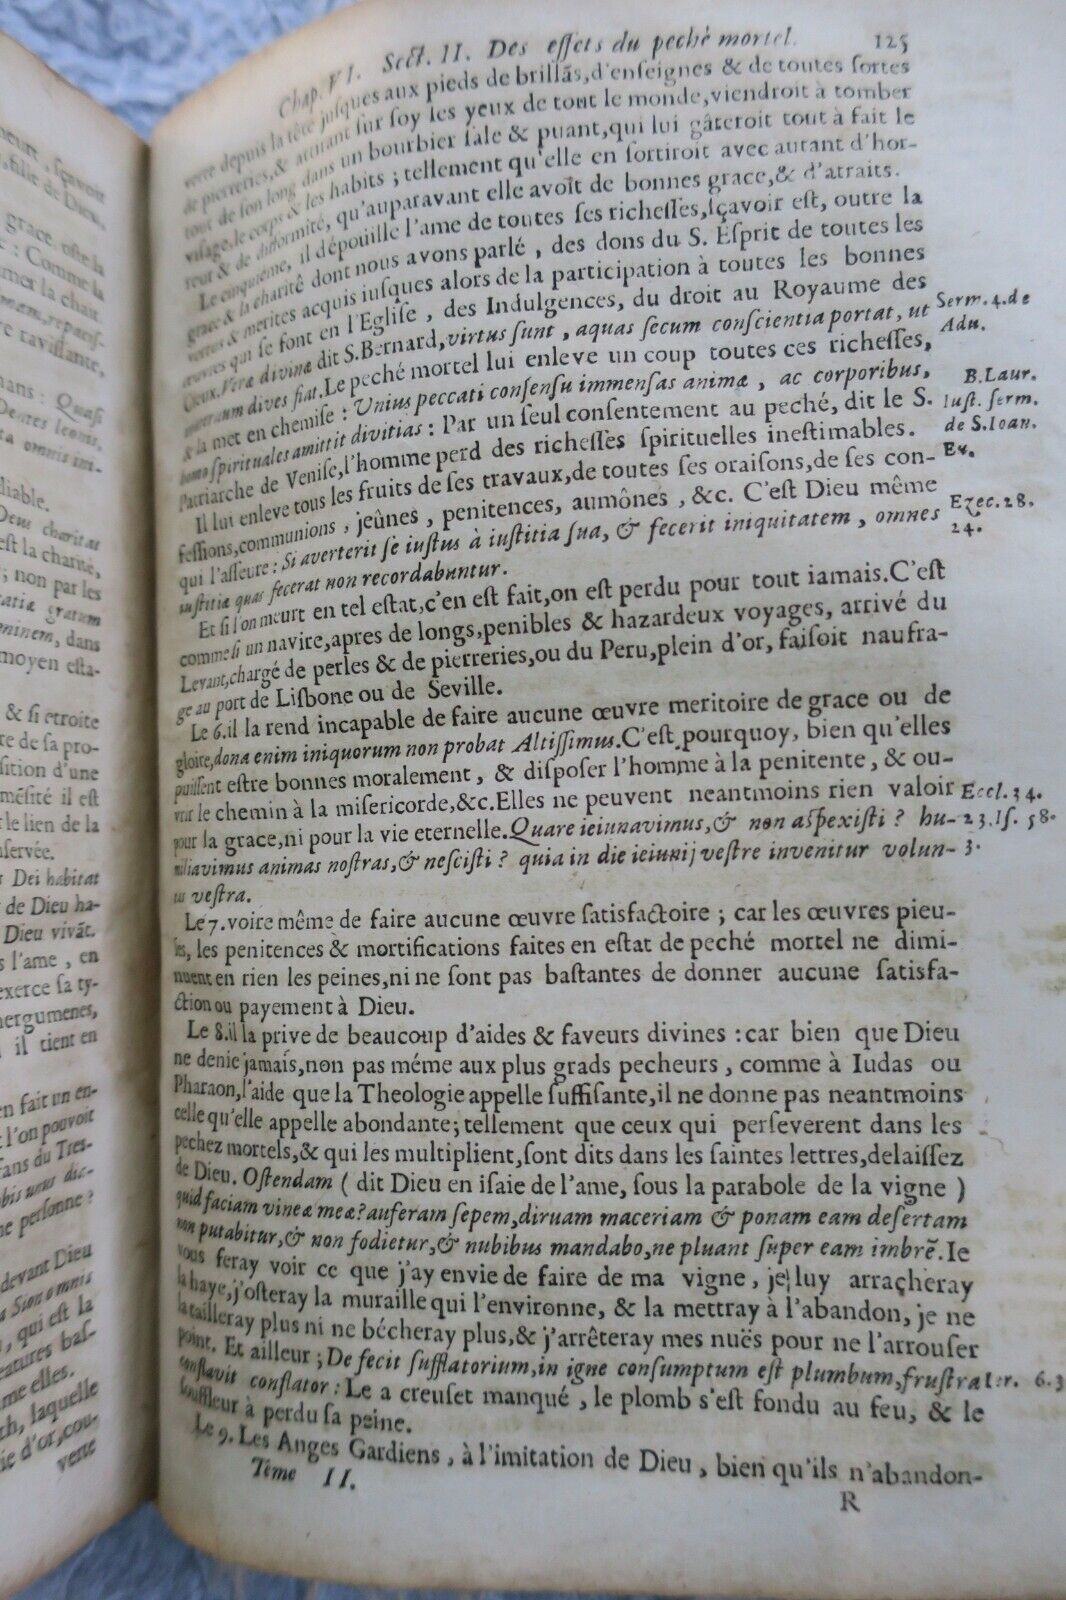 neurt, sçavoir
fille de Dieu,
grace, oste la
: Comme la
mer la chair
mem, repariſ-
e raviſſante,
mans : Quaſi
Dentes leonis,
ta omnis im-
liable.
Deus charitas
eſt la charité,
; non par les
tatiæ gratum
minem, dans
moyen eſta-
& ſi etroite
re de ſa pro-
ſition d'une
mēſité il eſt
r le lien de la
nſervée.
Dei habitat
de Dieu ha-
Dieu vivāt.
s l'ame, en
exerce ſa ty-
nergumenes,
il tient en
en fait un en-
l'on pouvoit
ſans du Tres-
obis unus dic-
ne perſonne?
devant Dieu
a Sion omnis
, qui eſt la
eatures baſ-
me elles.
th, laquelle
ie d'or, cou-
verte
Chap. VI. Sect. II. Des effets du peché mortel. 125
verte depuis la tête juſques aux pieds de brillās, d'enſeignes & de toutes ſortes
de pierreries, & attirant ſur ſoy les yeux de tout le monde, viendroit à tomber
tout de ſon long dans un bourbier ſale & puant, qui lui gâteroit tout à fait le
viſage, le corps & les habits ; tellement qu'elle en ſortiroit avec autant d'hor-
reur & de difformité, qu'auparavant elle avoit de bonnes grace, & d'attraits.
Le cinquiéme, il dépouille l'ame de toutes ſes richeſſes, ſçavoir eſt, outre la
grace & la charité dont nous avons parlé, des dons du S. Eſprit de toutes les
vertes & merites acquis iuſques alors de la participation à toutes les bonnes
œuvres qui ſe font en l'Egliſe, des Indulgences, du droit au Royaume des
Cieux. Veræ divinæ dit S. Bernard, virtus ſunt, aquas ſecum conſcientia portat, ut
Serm. 4. de
Adu.
mereraum dives fiat. Le peché mortel lui enleve un coup toutes ces richeſſes,
& la met en chemiſe : Unius peccati conſenſu immenſas animæ, ac corporibus,
homo ſpirituales amittit divitias : Par un ſeul conſentement au peché, dit le S.
B. Laur.
Iuſt. ſerm.
de S. Ioan.
Ev.
Patriarche de Veniſe, l'homme perd des richeſſes ſpirituelles ineſtimables.
Il lui enleve tous les fruits de ſes travaux, de toutes ſes oraiſons, de ſes con-
feſſions, communions, jeûnes, penitences, aumônes, &c. C'eſt Dieu même
qui l'aſſeure : Si averterit ſe iuſtus à iuſtitia ſua, & fecerit iniquitatem, omnes
Ezec. 28.
24.
iuſtitiæ quas fecerat non recordabuntur.
Et ſi l'on meurt en tel eſtat, c'en eſt fait, on eſt perdu pour tout iamais. C'eſt
comme ſi un navire, apres de longs, penibles & hazardeux voyages, arrivé du
Levant, chargé de perles & de pierreries, ou du Peru, plein d'or, faiſoit naufra-
ge au port de Liſbone ou de Seville.
Le 6. il la rend incapable de faire aucune œuvre meritoire de grace ou de
gloire, dona enim iniquorum non probat Altiſſimus. C'eſt pourquoy, bien qu'elles
puiſſent eſtre bonnes moralement, & diſpoſer l'homme à la penitente, & ou-
vrir le chemin à la miſericorde, &c. Elles ne peuvent neantmoins rien valoir
Eccl. 34.
23. Iſ. 58.
3.
pour la grace, ni pour la vie eternelle. Quare ieiunavimus, & non aſpexiſti ? hu-
miliavimus animas noſtras, & neſciſti ? quia in die ieiunij veſtre invenitur volun-
tas veſtra.
Le 7. voire même de faire aucune œuvre ſatisfactoire ; car les œuvres pieu-
ſes, les penitences & mortifications faites en eſtat de peché mortel ne dimi-
nuent en rien les peines, ni ne ſont pas baſtantes de donner aucune ſatisfa-
ction ou payement à Dieu.
Le 8. il la prive de beaucoup d'aides & faveurs divines : car bien que Dieu
ne denie jamais, non pas méme aux plus grads pecheurs, comme à Iudas ou
Pharaon, l'aide que la Theologie appelle ſuffiſante, il ne donne pas neantmoins
celle qu'elle appelle abondante; tellement que ceux qui perſeverent dans les
pechez mortels, & qui les multiplient, ſont dits dans les ſaintes lettres, delaiſſez
de Dieu. Oſtendam ( dit Dieu en iſaie de l'ame, ſous la parabole de la vigne )
quid faciam vineæ meæ? auferam ſepem, diruam maceriam & ponam eam deſertam
non putabitur, & non fodietur, & nubibus mandabo, ne pluant ſuper eam imbrē. Ie
vous feray voir ce que j'ay envie de faire de ma vigne, je luy arracheray
la haye, j'oſteray la muraille qui l'environne, & la mettray à l'abandon, je ne
la tailleray plus ni ne bécheray plus, & j'arrêteray mes nuës pour ne l'arrouſer
point. Et ailleur ; De fecit ſufflatorium, in igne conſumptum eſt plumbum, fruſtra
Ier. 6. 3
conflavit conflator : Le a creuſet manqué, le plomb s'eſt fondu au feu, & le
ſouffleur à perdu ſa peine.
Le 9. Les Anges Gardiens, à l'imitation de Dieu, bien qu'ils n'abandon-
Tome II.
R